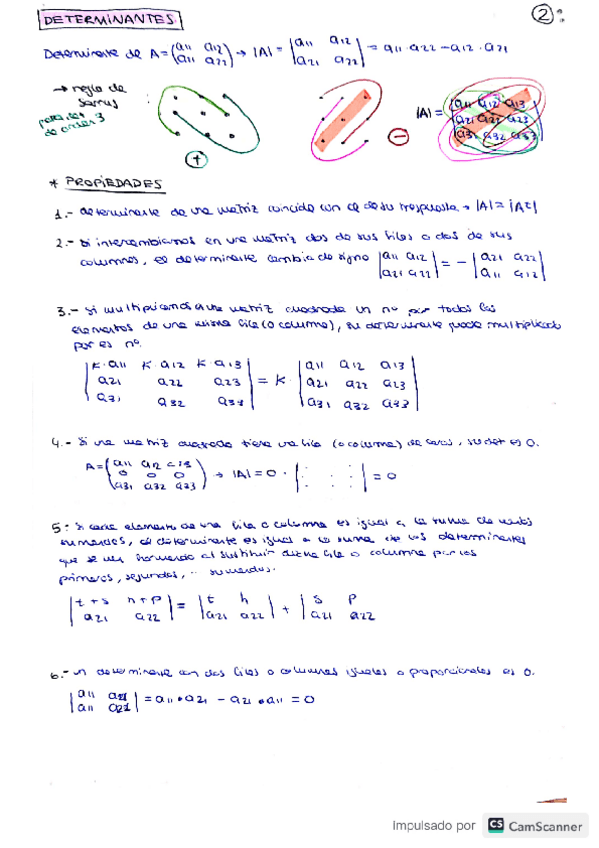 DETERMINANTES
2
Determinante de A = (a11 a12 / a11 a22) → |A| = |a11 a12 / a21 a22| = a11 · a22 - a12 · a21
→ regla de
sarrus
de orden 3
+
-
|A| = |a11 a12 a13 / a21 a22 a23 / a31 a32 a33|
* PROPIEDADES
1.- determinante de una matriz coincide con el de su traspuesta → |A| = |At|
2.- Si intercambiamos en una matriz dos de sus filas o dos de sus
columnas, el determinante cambia de signo |a11 a12 / a21 a22| = - |a21 a22 / a11 a12|
3.- Si multiplicamos a una matriz cuadrada un nº por todos los
elementos de una misma fila (o columna), su determinante queda multiplicado
por es nº.
|K·a11 K·a12 K·a13 / a21 a22 a23 / a31 a32 a33| = K · |a11 a12 a13 / a21 a22 a23 / a31 a32 a33|
4.- Si una matriz cuadrada tiene una fila (o columna) de ceros, su det es 0.
A = (a11 a12 a13 / 0 0 0 / a31 a32 a33) → |A| = 0 · | | = 0
5.- Si cada elemento de una fila o columna es igual a la suma de varios
sumandos, el determinante es igual a la suma de los determinantes
que se van formando al sustituir dicha fila o columna por los
primeros, segundos, ... sumandos.
|t+s h+p / a21 a22| = |t h / a21 a22| + |s p / a21 a22
6.- un determinante con dos filas o columnas iguales o proporcionales es 0.
|a11 a21 / a11 a21| = a11 · a21 - a21 · a11 = 0
Impulsado por CS CamScanner